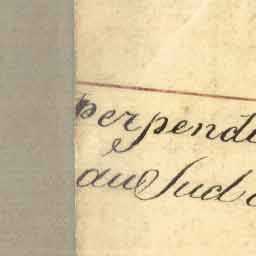 perpendi
au Sud